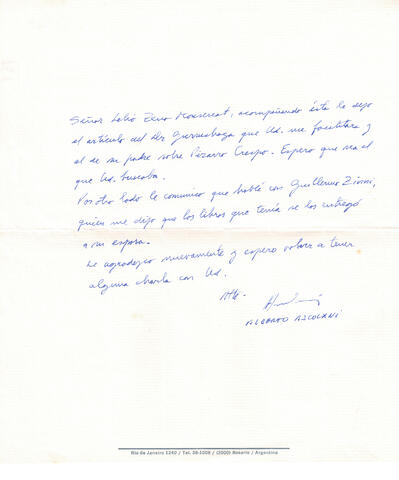 Señor Lelio Zeno Monserrat, acompañando ésta le dejo
el artículo del Dr que Ud. me facilitara y
el de su padre sobre Pizarro Crespo. Espero que sea el
que Ud. buscaba.
Por otro lado le comunico que hablé con Guillermo Zinni,
quien me dijo que los libros que tenía se los entregó
a su esposa.
Le agradezco nuevamente y espero volver a tener
alguna charla con Ud.
Atte.
ALBERTO ASCOLANI
Rio de Janeiro 1240 / Tel. 38-1008 / (2000) Rosario / Argentina